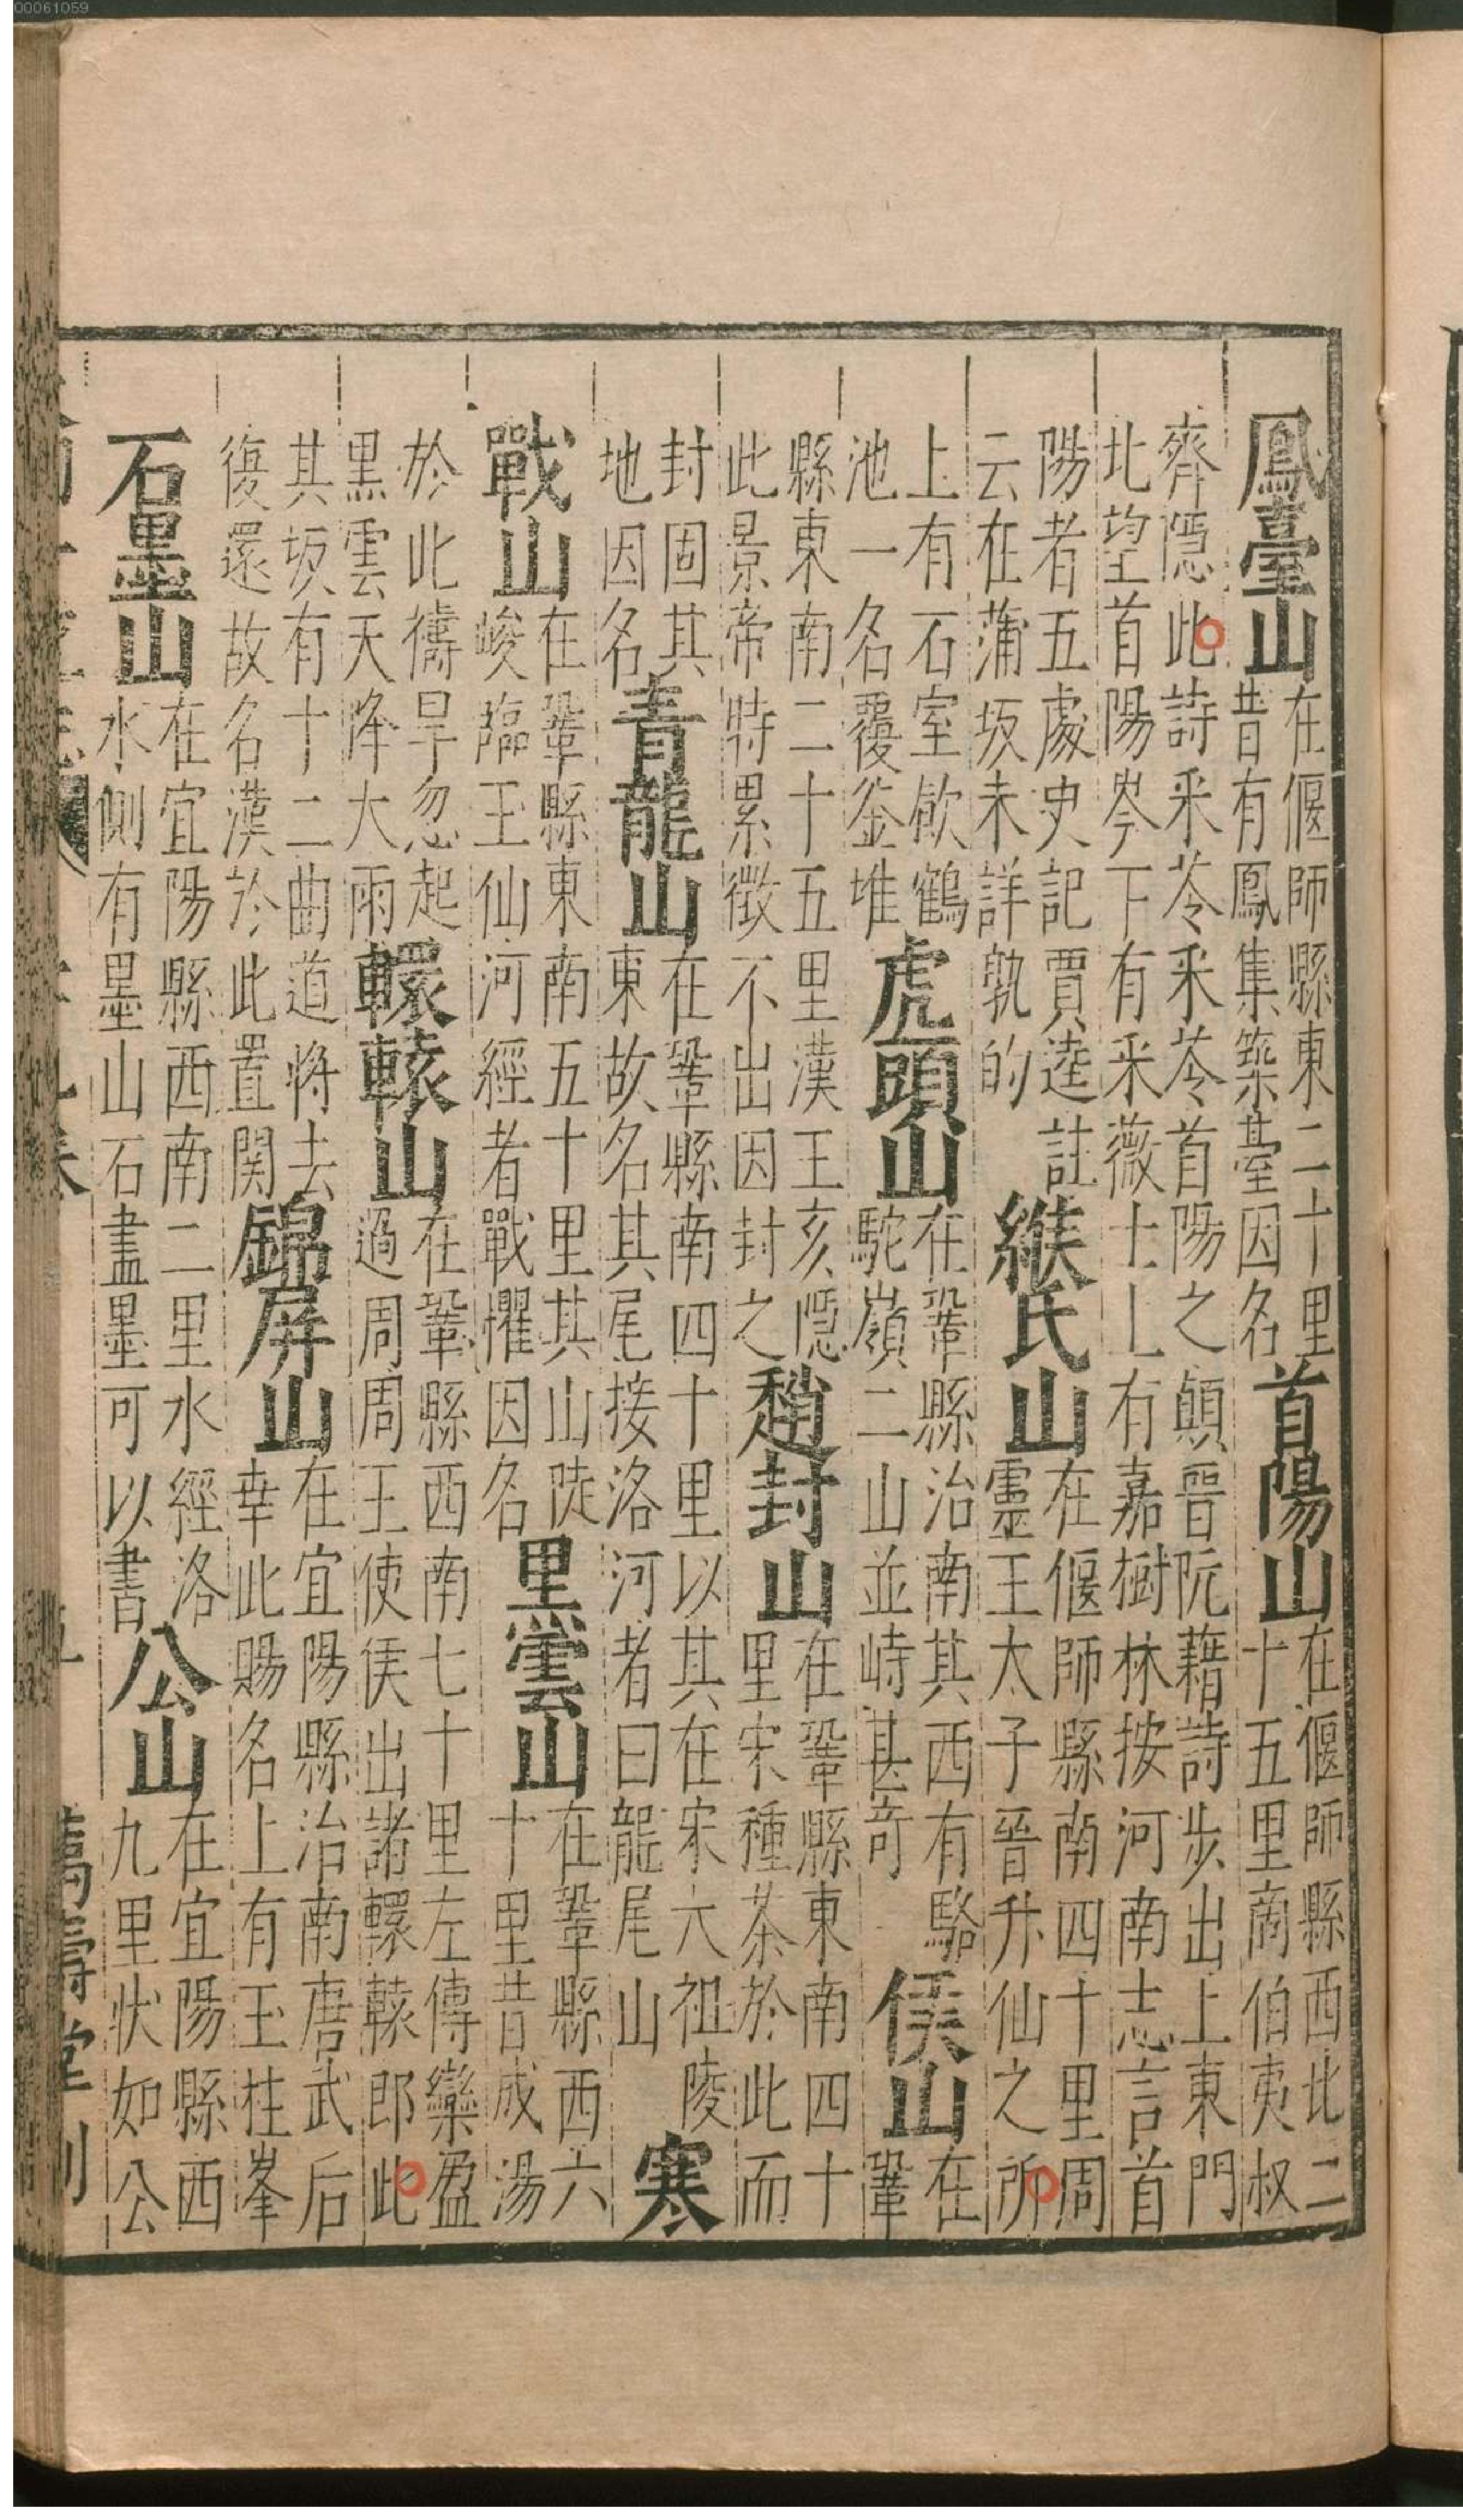 鳳臺山在偃師縣東二十里昔有鳳集築臺因名首陽山在偃師縣西北二十五里商伯夷叔
齊隱此詩采苓采苓首陽之顛晉阮藉詩步出上東門北望首陽岑下有采薇士上有嘉樹林按河南志言首
陽者五處史記賈逵註云在蒲坂未詳孰的緱氏山在偃師縣南四十里周靈王太子晉升仙之所
上有石室飲鶴池一名覆釜堆虎頭山在鞏縣治南其西有駱駝嶺二山並峙甚奇侯山在鞏
縣東南二十五里漢王亥隱此景帝特累徵不出因封之趙封山在鞏縣東南四十里宋種茶於此而
封固其地因名青龍山在鞏縣南四十里以其在宋六祖陵東故名其尾接洛河者曰龍尾山寒
戰山在鞏縣東南五十里其山陡峻臨玉仙河經者戰懼因名黑雲山在鞏縣西六十里昔成湯
於此禱旱忽起黑雲天降大雨轘轅山在鞏縣西南七十里左傳欒盈過周周王使侯出諸轘轅郎此
其坂有十二曲道將去復還故名漢於此置関錦屏山在宜陽縣治南唐武后幸此賜名上有玉柱峯
石墨山在宜陽縣西南二里水經洛水側有墨山石盡墨可以書公山在宜陽縣西九里狀如公
萬壽堂刊
00061059